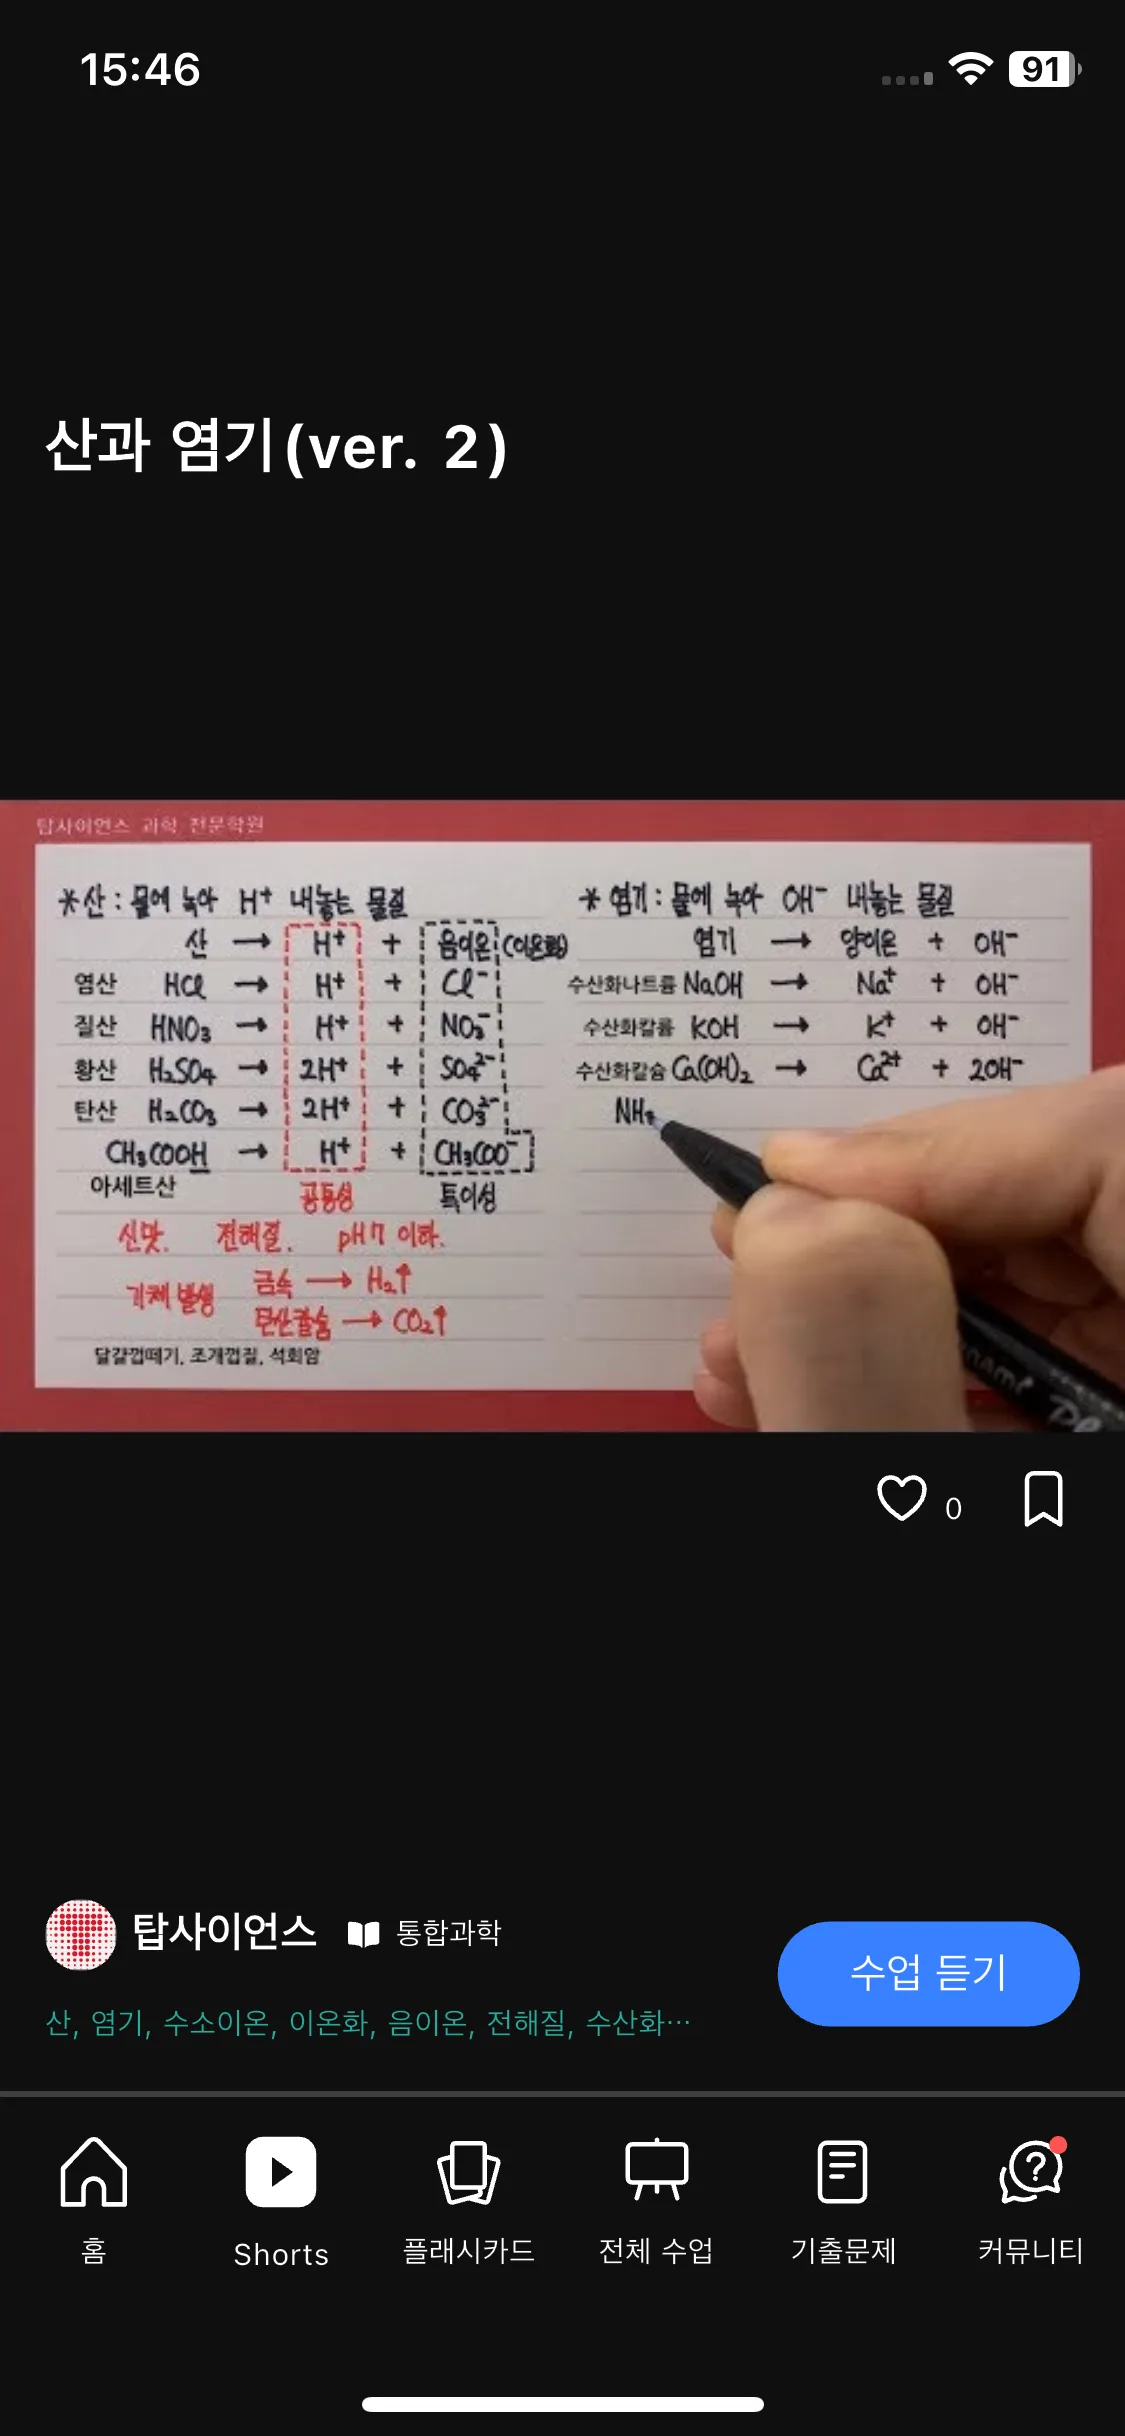 15:46
91
산과 염기(ver. 2)
탑사이언스 과학 전문학원
*산 : 물에 녹아 H⁺ 내놓는 물질
산 → H⁺ + 음이온 (이온화)
염산 HCl → H⁺ + Cl⁻
질산 HNO₃ → H⁺ + NO₃⁻
황산 H₂SO₄ → 2H⁺ + SO₄²⁻
탄산 H₂CO₃ → 2H⁺ + CO₃²⁻
CH₃COOH → H⁺ + CH₃COO⁻
아세트산 공통성 특이성
신맛. 전해질. pH 7 이하.
기체 발생 금속 → H₂↑
탄산칼슘 → CO₂↑
달걀껍떼기, 조개껍질, 석회암
* 염기 : 물에 녹아 OH⁻ 내놓는 물질
염기 → 양이온 + OH⁻
수산화나트륨 NaOH → Na⁺ + OH⁻
수산화칼륨 KOH → K⁺ + OH⁻
수산화칼슘 Ca(OH)₂ → Ca²⁺ + 2OH⁻
0
탑사이언스 통합과학
수업 듣기
산, 염기, 수소이온, 이온화, 음이온, 전해질, 수산화…
홈 Shorts 플래시카드 전체 수업 기출문제 커뮤니티